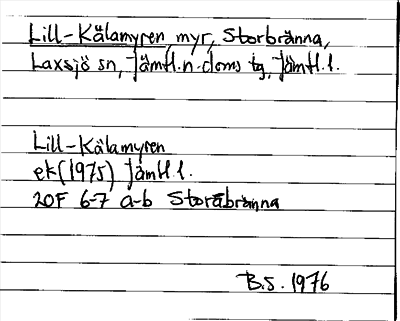 Lill-Kälamyren, myr, Storbränna,
Laxsjö sn, Jämtl.n.doms tg, Jämtl.l.
Lill-Kälamyren
ek (1975) Jämtl.l.
20F 6-7 a-b Storabränna
B.S. 1976